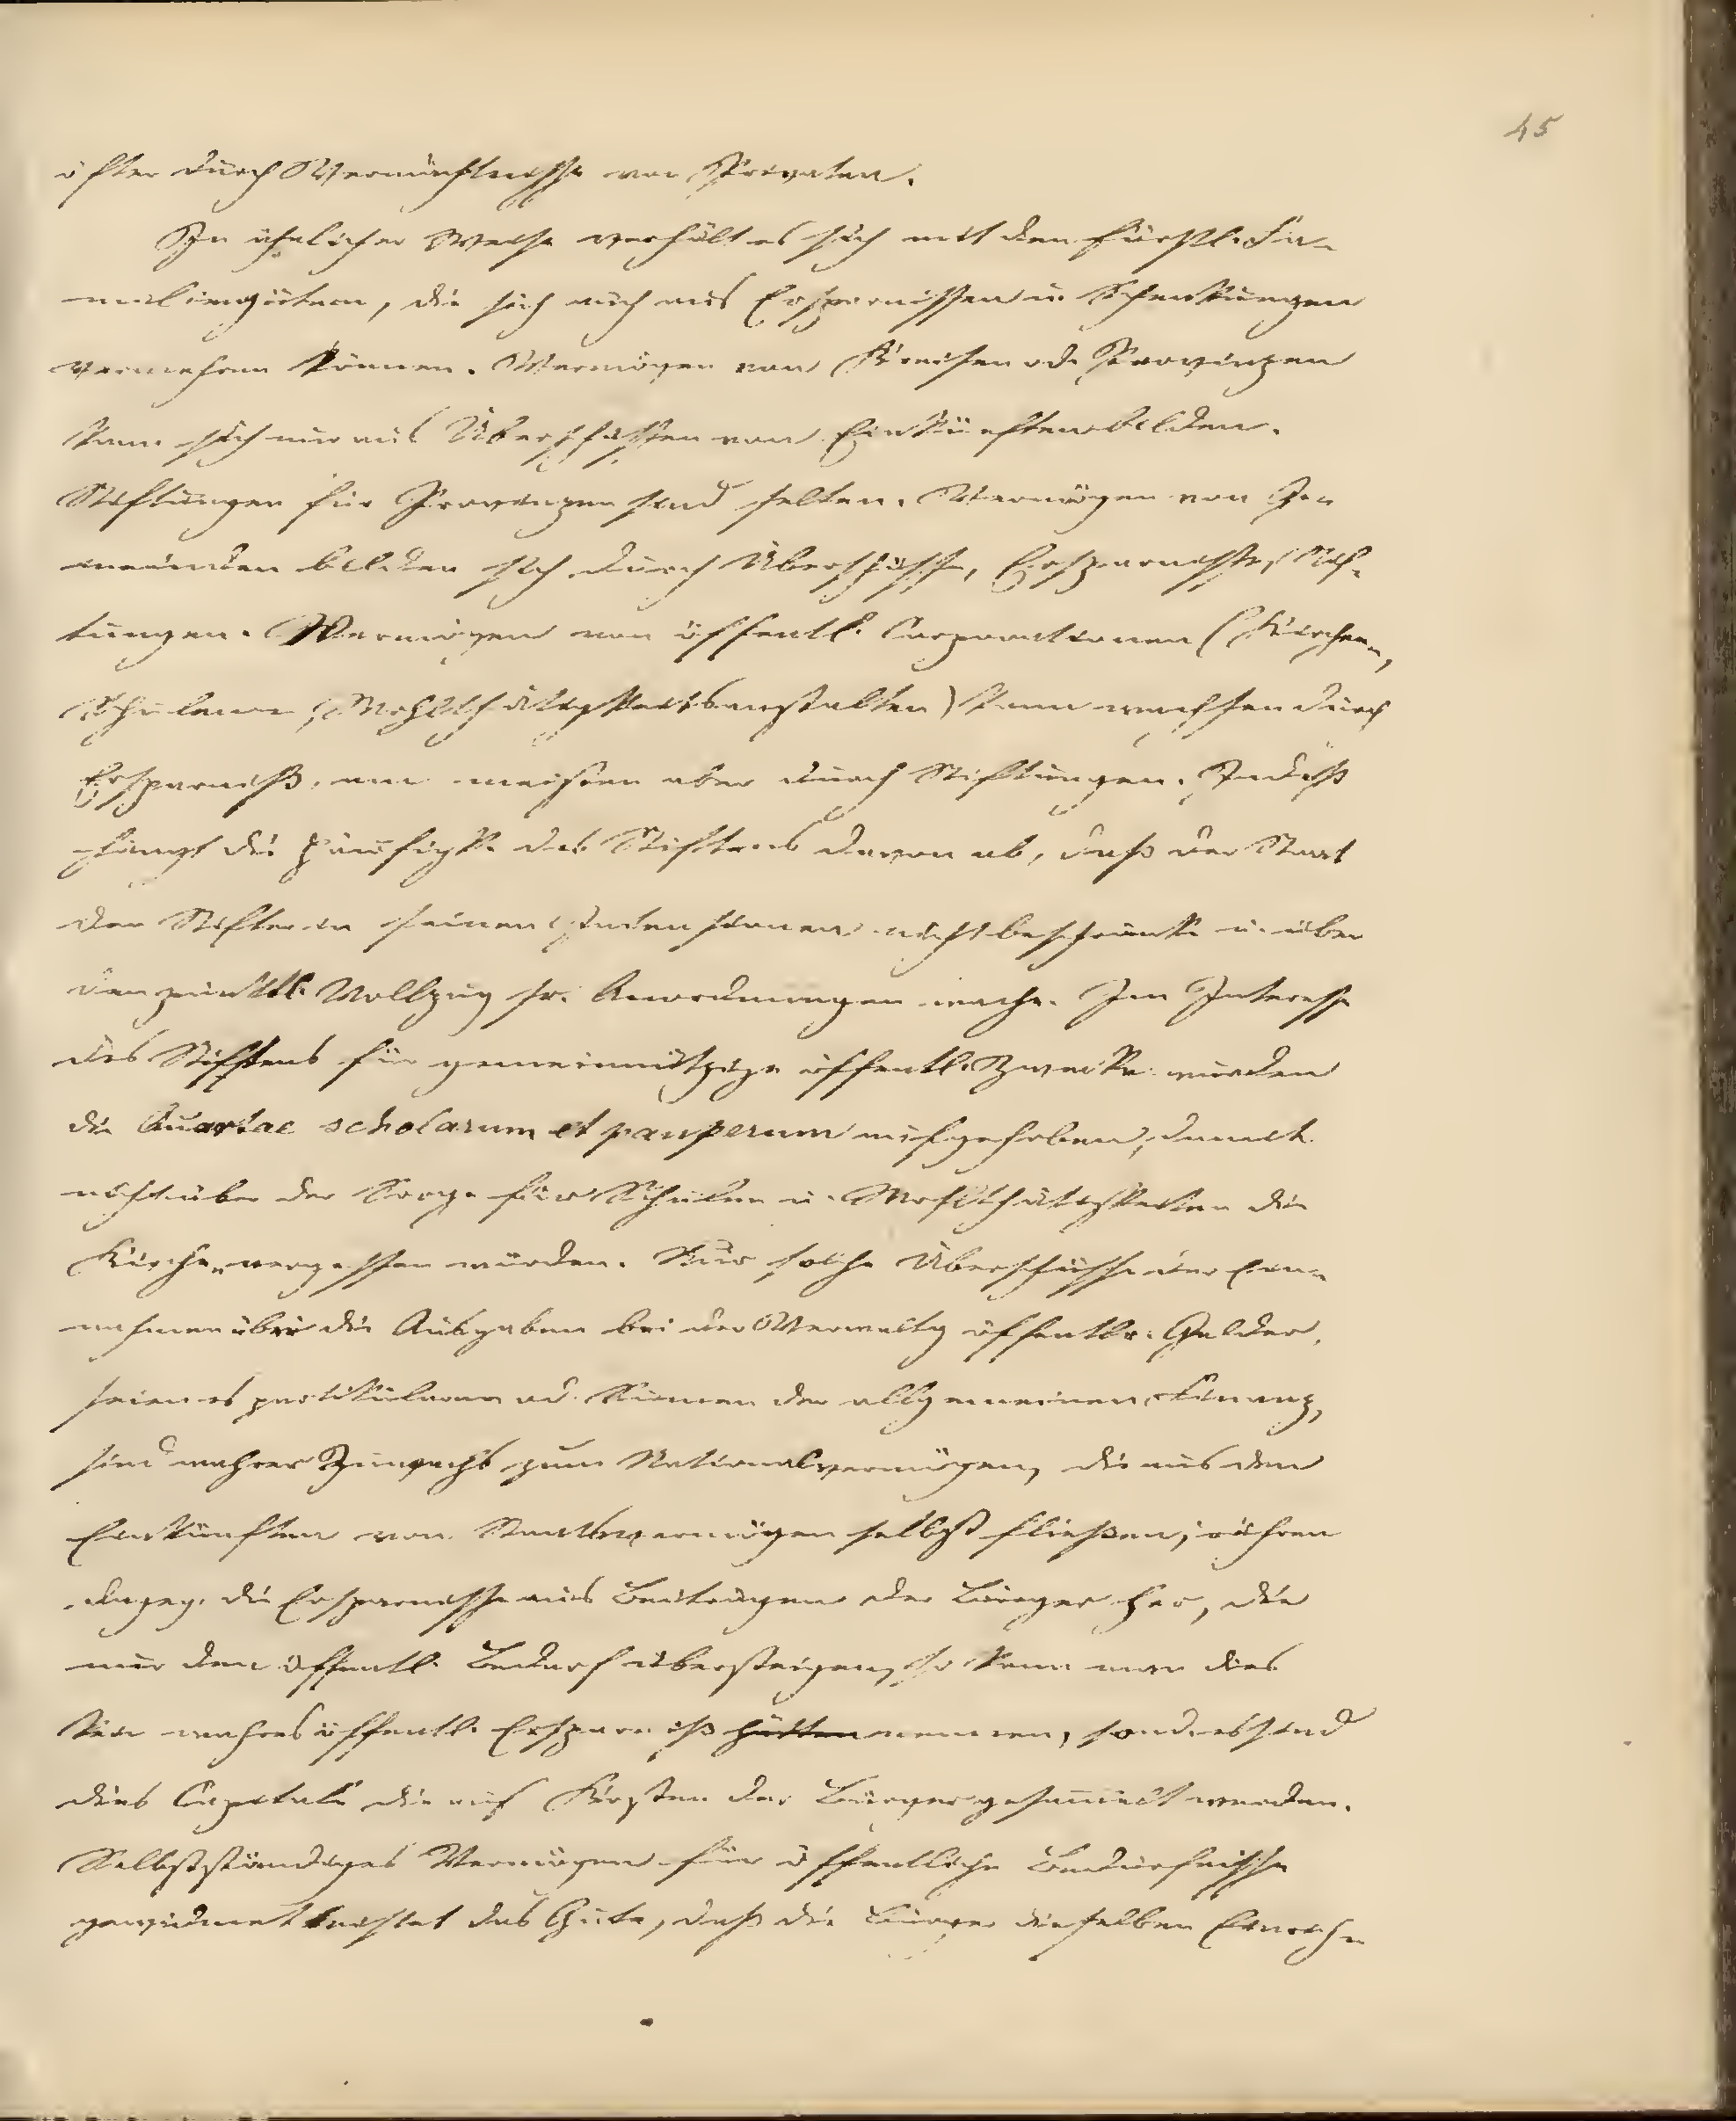 45
öfter durch Vermächtnisse von Privaten.
In ähnlicher Weise verhält es sich mit den fürstl. Fa-
miliengütern, die sich auch aus Ersparnissen u. Schenkungen
vermehren können. Vermögen von Kreisen od. Provinzen
kann sich nur aus Überschüssen von Einkünften bilden.
Stiftungen für Provinzen sind selten. Vermögen von Ge-
meinden bilden sich durch Überschüsse, Ersparnisse, Stif-
tungen. Vermögen von öffentl. Corporationen (Kirchen,
Schulen, Wohlthätigkeitsanstalten) kann wachsen durch
Ersparniß, am meisten aber durch Stiftungen. Indeß
hängt die Häufigk. des Stiftens davon ab, daß der Staat
den Stifter in seinen Intensionen nicht beschränke u. über
den pünktl. Vollzug sr. Anordnungen wache. Im Interesse
des Stiftens für gemeinnützige öffentl. Zwecke wurden
die Quartae scholarum et pauperum aufgehoben, damit
nicht über der Sorge für Schulen u. Wohlthätigkeiten die
Kirchen vergessen würden. Nur solche Überschüsse der Ein-
nahmen über die Ausgaben bei der Verwaltg öffentlr. Gelder,
seien es partikularen od. Summen der allgemeinen Finanz,
sind wahrer Zuwachs zum Nationalvermögen, die aus den
Einkünften von Staatsvermögen selbst fließen; rühren
dageg. die Ersparnisse aus Beiträgen der Bürger her, die
nur den öffentl. Bedarf übersteigen, so kann man dies
kein wahres öffentl. Ersparniß hätten nennen, sond. es sind
dies Capitale die auf Kosten der Bürger gesammelt werden.
Selbstständiges Vermögen für öffentliche Bedürfnisse
gewidmet leistet das Gute, daß die Bürger dieselben